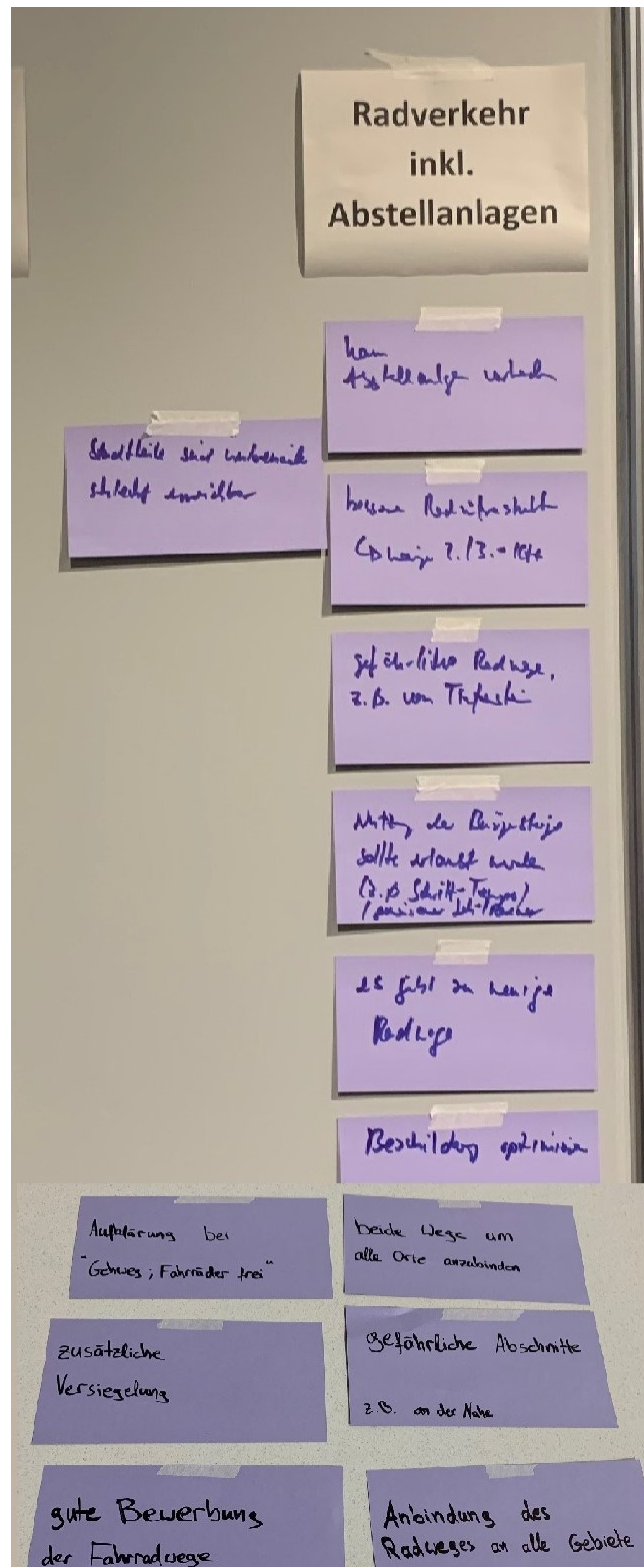 Radverkehr
inkl.
Abstellanlagen
kaum
Abstellanlagen vorhanden
Stadtteile sind untereinander
schlecht erreichbar
bessere Radinfrastruktur
gefährliche Radwege,
z.B. vom
Nutzung der Bürgersteige
sollte erlaubt werden
(z.B. Schritt-Tempo)
es gibt zu wenige
Radwege
Beschilderung optimieren
Aufklärung bei
"Gehweg; Fahrräder frei"
beide Wege um
alle Orte anzubinden
zusätzliche
Versiegelung
gefährliche Abschnitte
z.B. an der Nahe
gute Bewerbung
der Fahrradwege
Anbindung des
Radweges an alle Gebiete